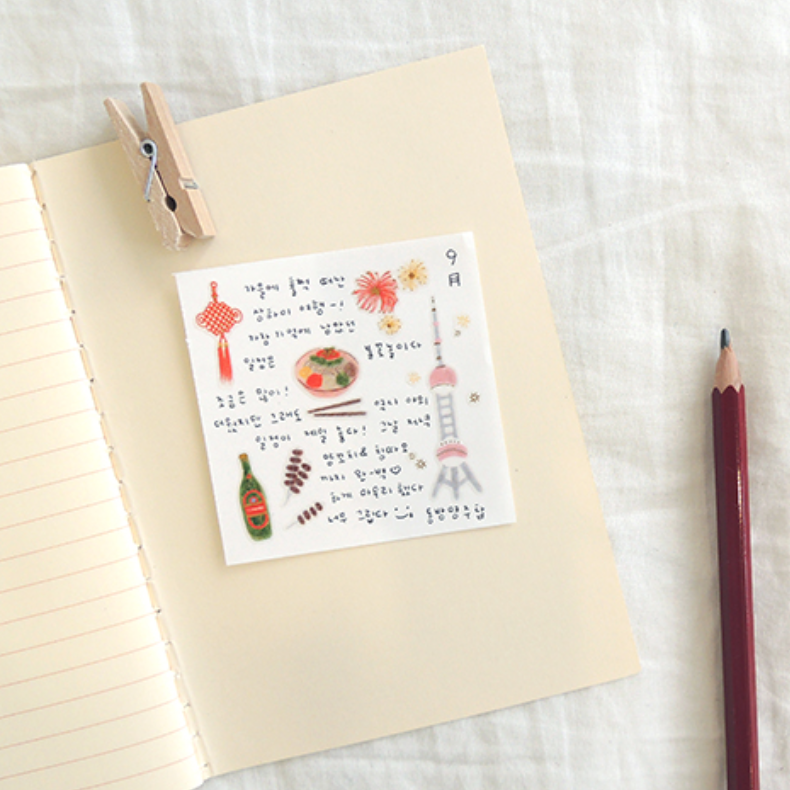 9
月
가을에 훌쩍 떠난
상하이 여행~!
가장 기억에 남았던
일정은 불꽃놀이다
조금은 많이!
더웠지만 그래도 역시 야외
일정이 제일 좋다! 그날 저녁
양꼬치& 칭따오
까지 완-벽♡
하게 마무리했다
너무 그립다 동방명주탑